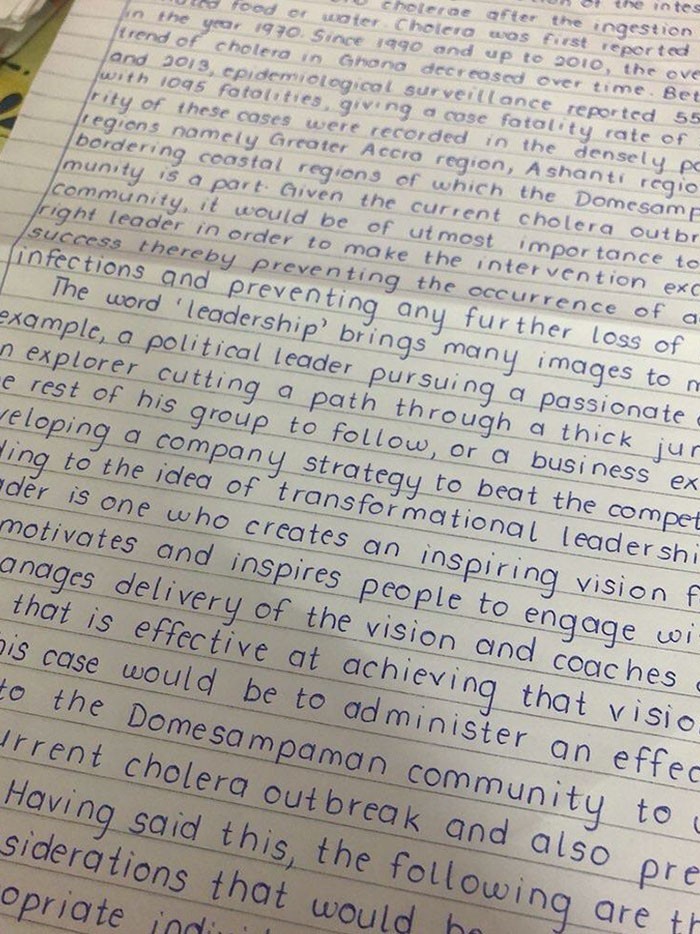 food or water. Cholera was first reported
cholerae after the ingestion
in the year 1970. Since 1990 and up to 2010, the
trend of cholera in Ghana decreased over time.
and 2013, epidemiological surveillance reported 55
with 1095 fatalities, giving a case fatality rate of
of these cases were recorded in the densely
regions namely Greater Accra region, Ashanti
bordering coastal regions of which the
is a part. Given the current cholera
community, it would be of utmost importance to
right leader in order to make the intervention
success thereby preventing the occurrence of
infections and preventing any further loss of
The word 'leadership' brings many images to
example, a political leader pursuing a passionate
explorer cutting a path through a thick
rest of his group to follow, or a business
a company strategy to beat the
to the idea of transformational
is one who creates an inspiring vision
motivates and inspires people to engage
delivery of the vision and coaches
that is effective at achieving that
case would be to administer an
to the Domesampaman community to
cholera outbreak and also
Having said this, the following are
that would